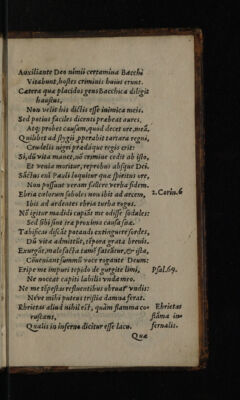 Auxiliante Deo nimii certamina Bacchi
Vitabunt, hostes criminis huius erunt.
Cætera quæ placidos gens Bacchica diligit
haustus,
Non velit his dictis esse inimica meis.
Sed potius faciles dicenti præbeat aures,
Atq; probet causam, quod decet ure, meã.
Quilibet ad stygij pperabit tartara regni,
Crudelis nigri prædaque regis erit:
Si, dũ vita manet, nõ crimine cedit ab isto,
Et tandẽ moritur, reprobus absque Deo.
Sãctus eũl Pauli loquitur quæ spiritus ore,
Non possunt veram fallere verba fidem.
Ebria cœlorum soboles non ibit ad arcem,
1. Corin. 6
Ibit ad ardentes ebria turba rogos.
Nõ igitur madidi cupiãt me odisse sodales:
Sed sibi sint iræ proxima causa suæ.
Tabificas discãt potandi extinguere sordes,
Dũ vita admittit, tẽpora grata brevis.
Exurgãt, malefacta tamẽ fateãtur, & ista,
Conueniant summũ voce rogante Deum:
Eripe me impuri tepido de gurgite limi,
Psal. 69.
Ne noceat capiti labilis vnda meo.
Ne me tẽpestas refluentibus obruat vndis:
Neve mihi puteus tristia damna ferat.
Ebrietas aliud nihil est, quàm flamma co-
Ebrietas
ruscans,
flãma in-
Qualis in inferno dicitur esse lacu.
fernalis.
Quæ